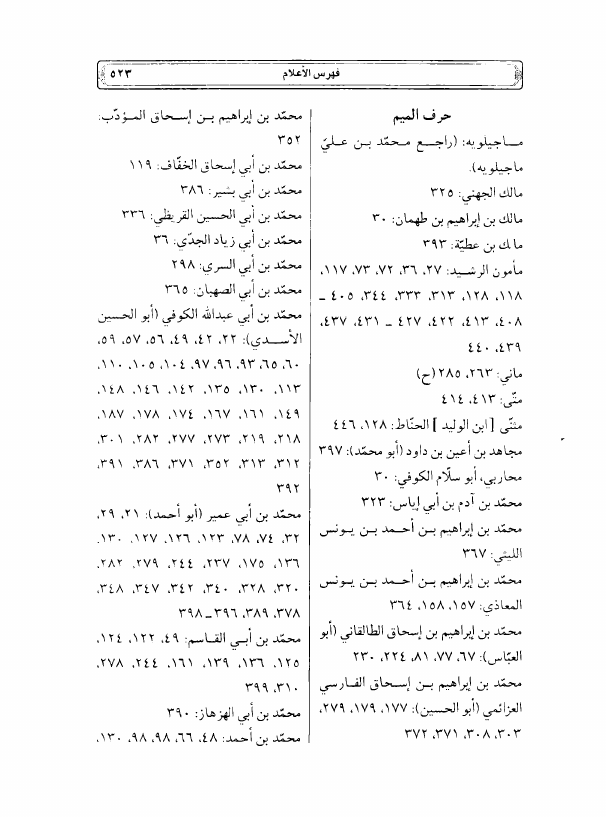 فهرس الأعلام
٥٢٣
حرف الميم
مـاجيلويه: (راجـع مـحمّد بـن عـليّ
ماجيلويه).
مالك الجهني: ٣٢٥
مالك بن إبراهيم بن طهمان: ٣٠
مالك بن عطيّة: ٣٩٣
مأمون الرشيد: ٢٧، ٣٦، ٧٢، ٧٣، ١١٧،
١١٨، ١٢٨، ٣١٣، ٣٣٣، ٣٤٤، ٤٠٥ ـ
٤٠٨، ٤١٣، ٤٢٢، ٤٢٧ ـ ٤٣١، ٤٣٧،
٤٣٩، ٤٤٠
ماني: ٢٦٣، ٢٨٥(ح)
متّى: ٤١٣، ٤١٤
مثنّى [ابن الوليد] الحنّاط: ١٢٨، ٤٤٦
مجاهد بن أعين بن داود (أبو محمّد): ٣٩٧
محاربي، أبو سلّام الكوفي: ٣٠
محمّد بن آدم بن أبي إياس: ٣٢٣
محمّد بن إبراهيم بـن أحـمد بـن يـونس
الليثي: ٣٦٧
محمّد بن إبراهيم بـن أحـمد بـن يـونس
المعاذي: ١٥٧، ١٥٨، ٣٦٤
محمّد بن إبراهيم بن إسحاق الطالقاني (أبو
العبّاس): ٦٧، ٧٧، ٨١، ٢٢٤، ٢٣٠
محمّد بن إبراهيم بـن إسـحاق الفـارسي
العزائمي (أبو الحسين): ١٧٧، ١٧٩، ٢٧٩،
٣٠٣، ٣٠٨، ٣٧١، ٣٧٢
محمّد بن إبراهيم بـن إسـحاق المـؤدّب:
٣٥٢
محمّد بن أبي إسحاق الخفّاف: ١١٩
محمّد بن أبي بشير: ٣٨٦
محمّد بن أبي الحسين القريظي: ٣٣٦
محمّد بن أبي زياد الجدّي: ٣٦
محمّد بن أبي السري: ٢٩٨
محمّد بن أبي الصهبان: ٣٦٥
محمّد بن أبي عبدالله الكوفي (أبو الحسين
الأسـدي): ٢٢، ٤٢، ٤٩، ٥٦، ٥٧، ٥٩،
٦٠، ٦٥، ٩٣، ٩٦، ٩٧، ١٠٤، ١٠٥، ١١٠،
١١٣، ١٣٠، ١٣٥، ١٤٢، ١٤٦، ١٤٨،
١٤٩، ١٦١، ١٦٧، ١٧٤، ١٧٨، ١٨٧،
٢١٨، ٢١٩، ٢٧٣، ٢٧٧، ٢٨٢، ٣٠١،
٣١٢، ٣١٣، ٣٥٢، ٣٧١، ٣٨٦، ٣٩١،
٣٩٢
محمّد بن أبي عمير (أبو أحمد): ٢١، ٢٩،
٣٢، ٧٤، ٧٨، ١٢٣، ١٢٦، ١٢٧، ١٣٠،
١٣٦، ١٧٥، ٢٣٧، ٢٤٤، ٢٧٩، ٢٨٢،
٣٢٠، ٣٢٨، ٣٤٠، ٣٤٢، ٣٤٧، ٣٤٨،
٣٧٨، ٣٨٩، ٣٩٦ـ ٣٩٨
محمّد بن أبـي القـاسم: ٤٩، ١٢٢، ١٢٤،
١٢٥، ١٣٦، ١٣٩، ١٦١، ٢٤٤، ٢٧٨،
٣١٠، ٣٩٩
محمّد بن أبي الهزهاز: ٣٩٠
محمّد بن أحمد: ٤٨، ٦٦، ٩٨، ٩٨، ١٣٠،